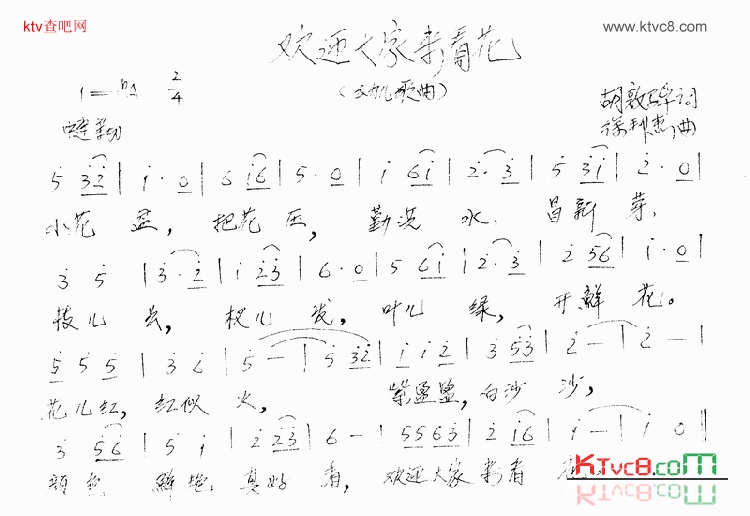 ktv查吧网
www.ktvc8.com
欢迎大家来看花
(幼儿歌曲)
1=ᵇA 2/4
胡敦骅词
徐利杰曲
5 3 2 | 1 · 0 | 6 1 6 | 5 · 0 | 1 6 1 | 2 · 3 | 5 3 1 | 2 · 0 |
小花盆,把花压,勤浇水,冒新芽.
3 5 | 3 · 2 | 1 2 3 | 6 · 0 | 5 6 1 | 2 · 3 | 2 5 6 | 1 · 0 |
枝儿长,杈儿发,叶儿绿,开鲜花。
5 5 5 | 3 6 | 5 - | 5 3 2 | 1 1 2 | 3 5 3 | 2 - | 2 - |
花儿红,红似火,紫盈盈,白沙沙,
3 5 6 | 5 1 | 2 2 3 | 6 - | 5 5 6 3 | 2 1 6 | 1 - | 1 0 ‖
颜色鲜艳真好看,欢迎大家来看
KTVC8.COM